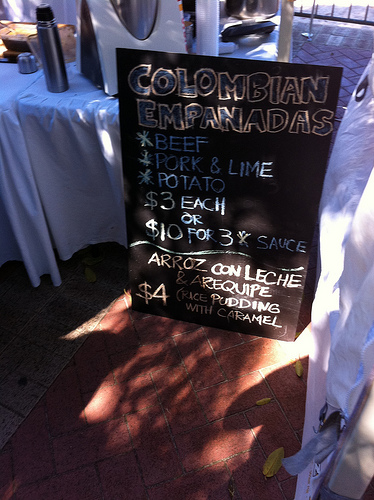 COLOMBIAN
EMPANADAS
*BEEF
*PORK & LIME
*POTATO
$3 EACH
OR
$10 FOR 3 * SAUCE
ARROZ CON LECHE
& AREQUIPE
$4 (RICE PUDDING
WITH CARAMEL)